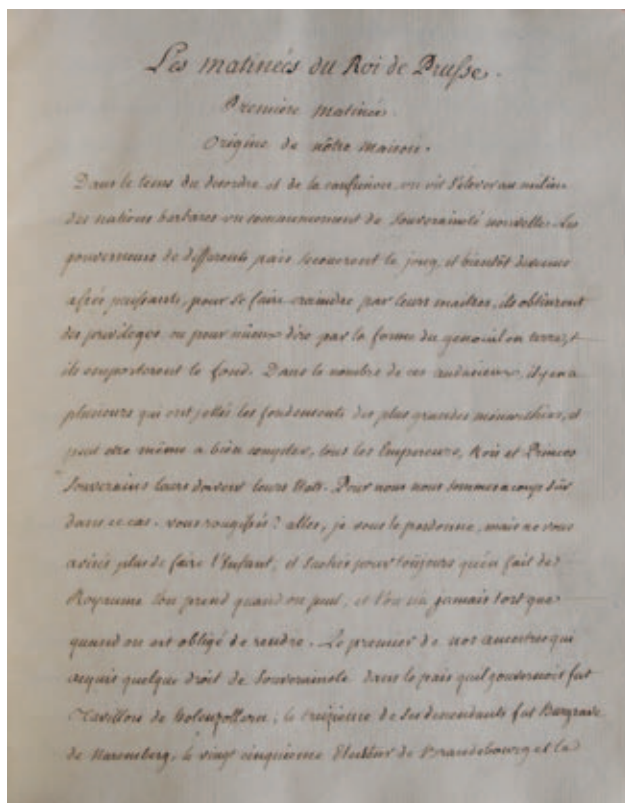 Les matineés du Roi de Prusse.
Premiere matineé
Origine de nôtre maison.
Dans le tems du desordre et de la confusion, on vit s'élever au milieu
des nations barbares un commencement de Souveraineté nouvelle. Les
gouverneurs de differents païs secouerent le joug, et bientôt devenus
assés puissants, pour se faire craindre par leurs maitres, ils obtinrent
des privileges, ou pour mieux dire par la forme du genouil en terre,
ils emporterent le fond. Dans le nombre de ces audacieux, il y en a
plusieurs qui ont jettés les fondements des plus grandes monarchies, et
peut etre même a bien compter, tous les Empereurs, Rois et Princes
Souverains leurs doivent leurs Etats. Pour nous nous sommes a coup sûr
dans ce cas. vous rougissés? allés, je vous le pardonne, mais ne vous
avisés plus de faire l'Enfant, et sachés pour toûjours qu'en fait de
Royaume l'on prend quand on peut, et l'on n'a jamais tort que
quand on est obligé de rendre. Le premier de nos ancestres qui
acquis quelque droit de Souveraineté dans le païs qu'il gouvernoit fut
Tavillon de Hohenzollern; le treizieme de ses descendants fut Burgrave
de Nuremberg, le vingt cinquieme Electeur de Brandebourg et le